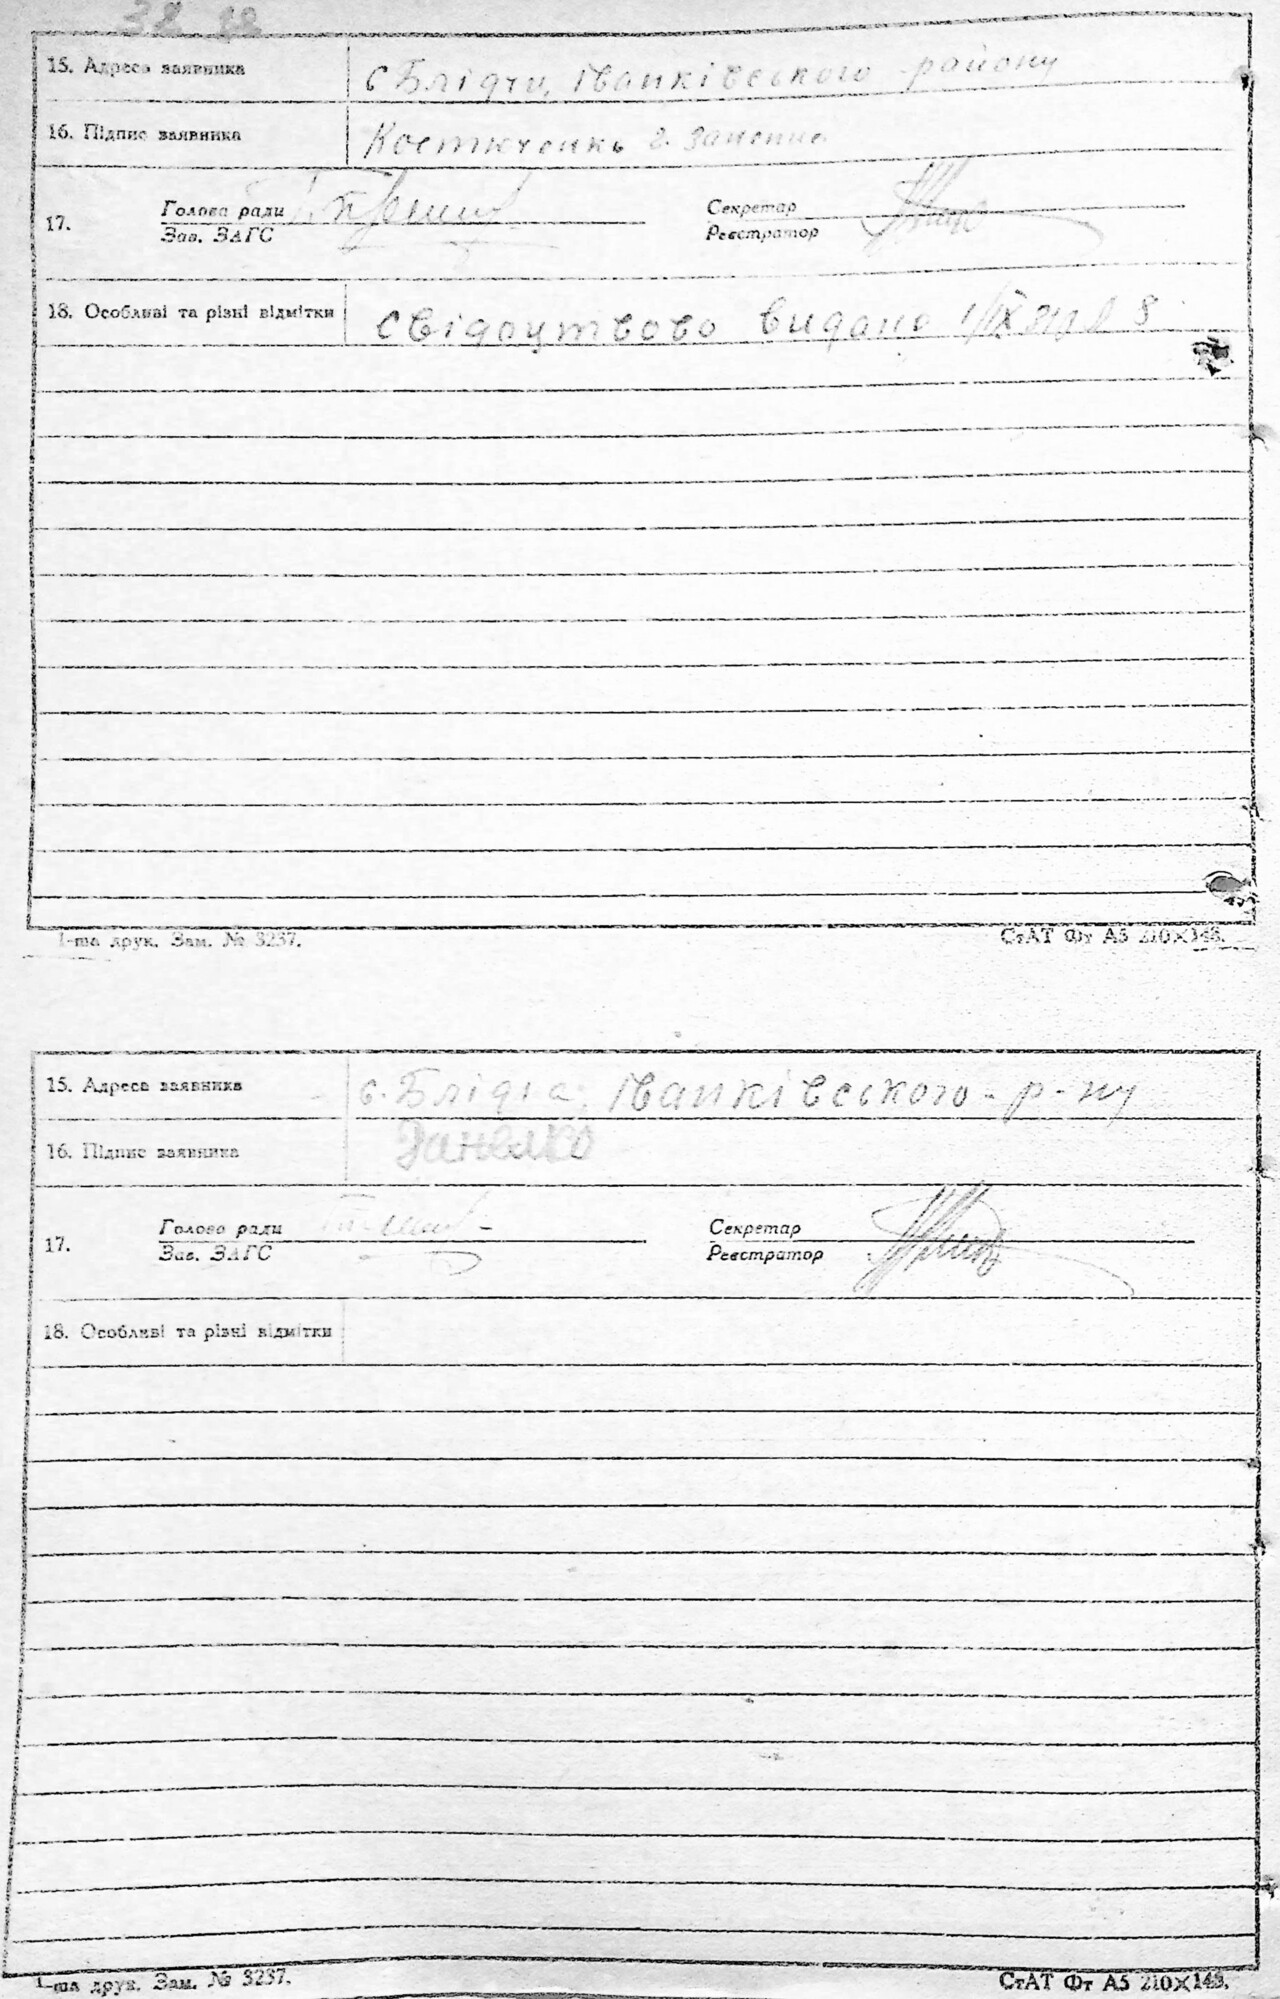 38
15. Адреса заявника с Блідчи, Іванківського району
16. Підпис заявника Костюченкь
17. Голова ради Секретар
Зав. ЗАГС Реєстратор
18. Особливі та різні відмітки свідоцтвово видано 1/IX
1-ша друк. Зам. № 3237. СтАТ Фт А5 210×148.
15. Адреса заявника с. Блідча, Іванківського р-ну
16. Підпис заявника
17. Голова ради Секретар
Зав. ЗАГС Реєстратор
18. Особливі та різні відмітки
1-ша друк. Зам. № 3237. СтАТ Фт А5 210×148.